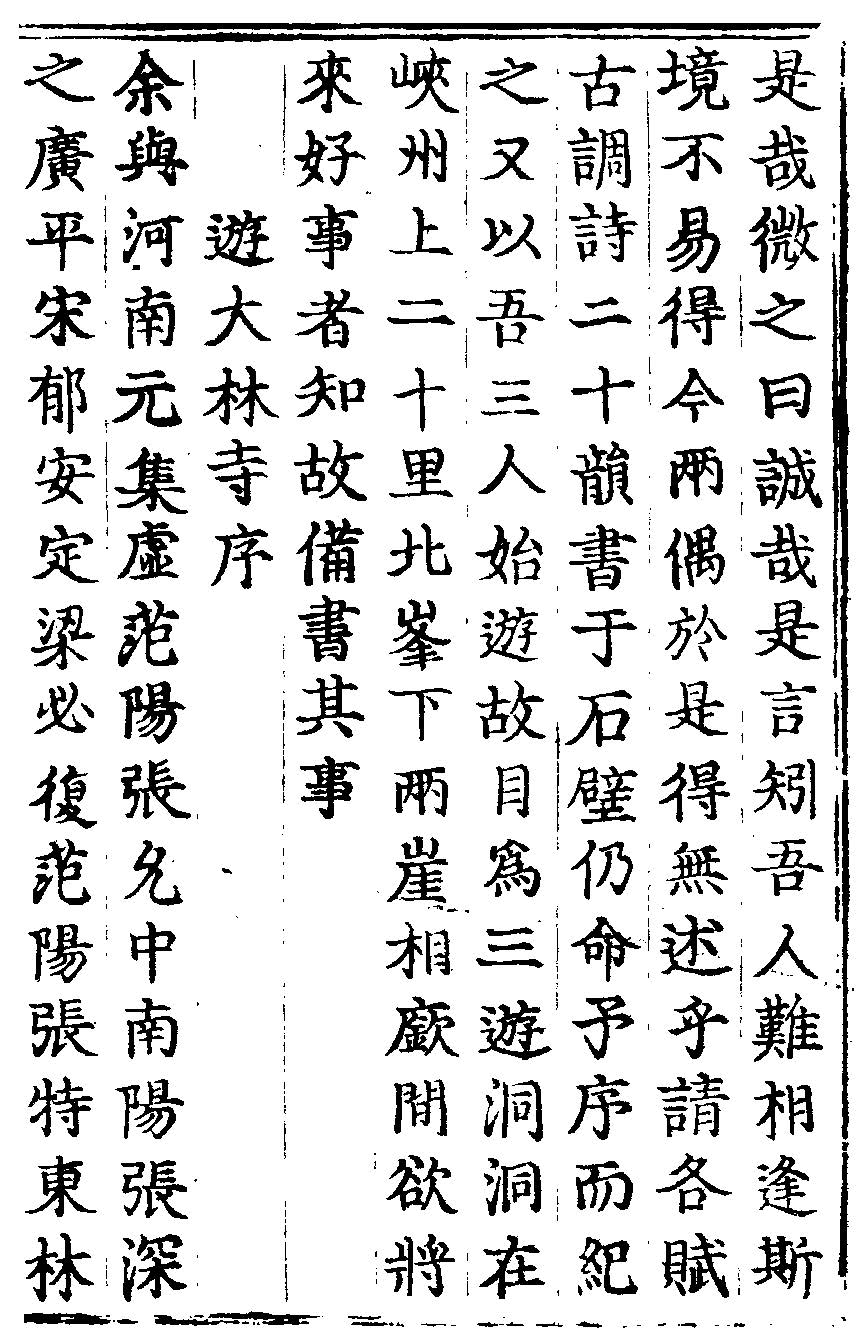 是哉微之曰誠哉是言矧吾人難相逢斯
境不易得今兩偶於是得無述乎請各賦
古調詩二十韻書于石壁仍命予序而紀
之又以吾三人始遊故目爲三遊洞洞在
峽州上二十里北峯下兩崖相廞間欲將
來好事者知故備書其事
遊大林寺序
余與河南元集虛范陽張允中南陽張深
之廣平宋郁安定梁必復范陽張特東林